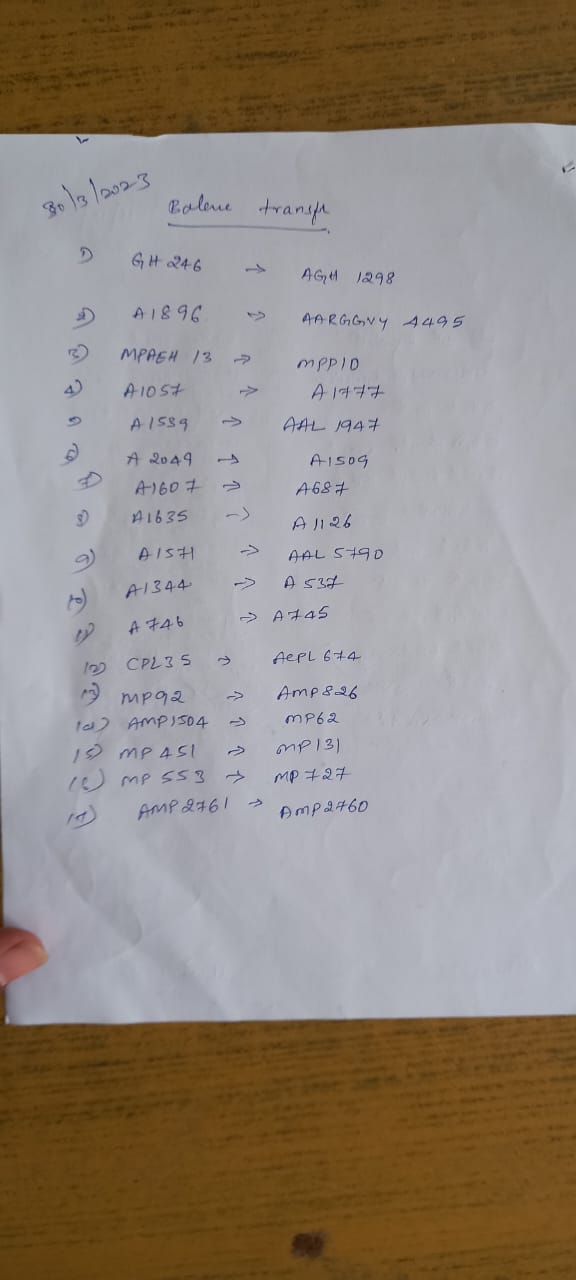 30/3/2023
Balene transfr
1) GH 246 → AGH 1298
2) A1896 → AARGGVY 4495
3) MPAEH 13 → MPP10
4) A1057 → A1777
5) A1539 → AAL 1947
6) A 2049 → A1509
7) A1607 → A687
8) A1635 → A1126
9) A1571 → AAL 5790
10) A1344 → A 537
11) A746 → A745
12) CPL35 → ACPL 674
13) MP92 → AMP826
14) AMP1504 → MP62
15) MP 451 → MP131
16) MP 553 → MP 727
17) AMP2761 → AMP2760